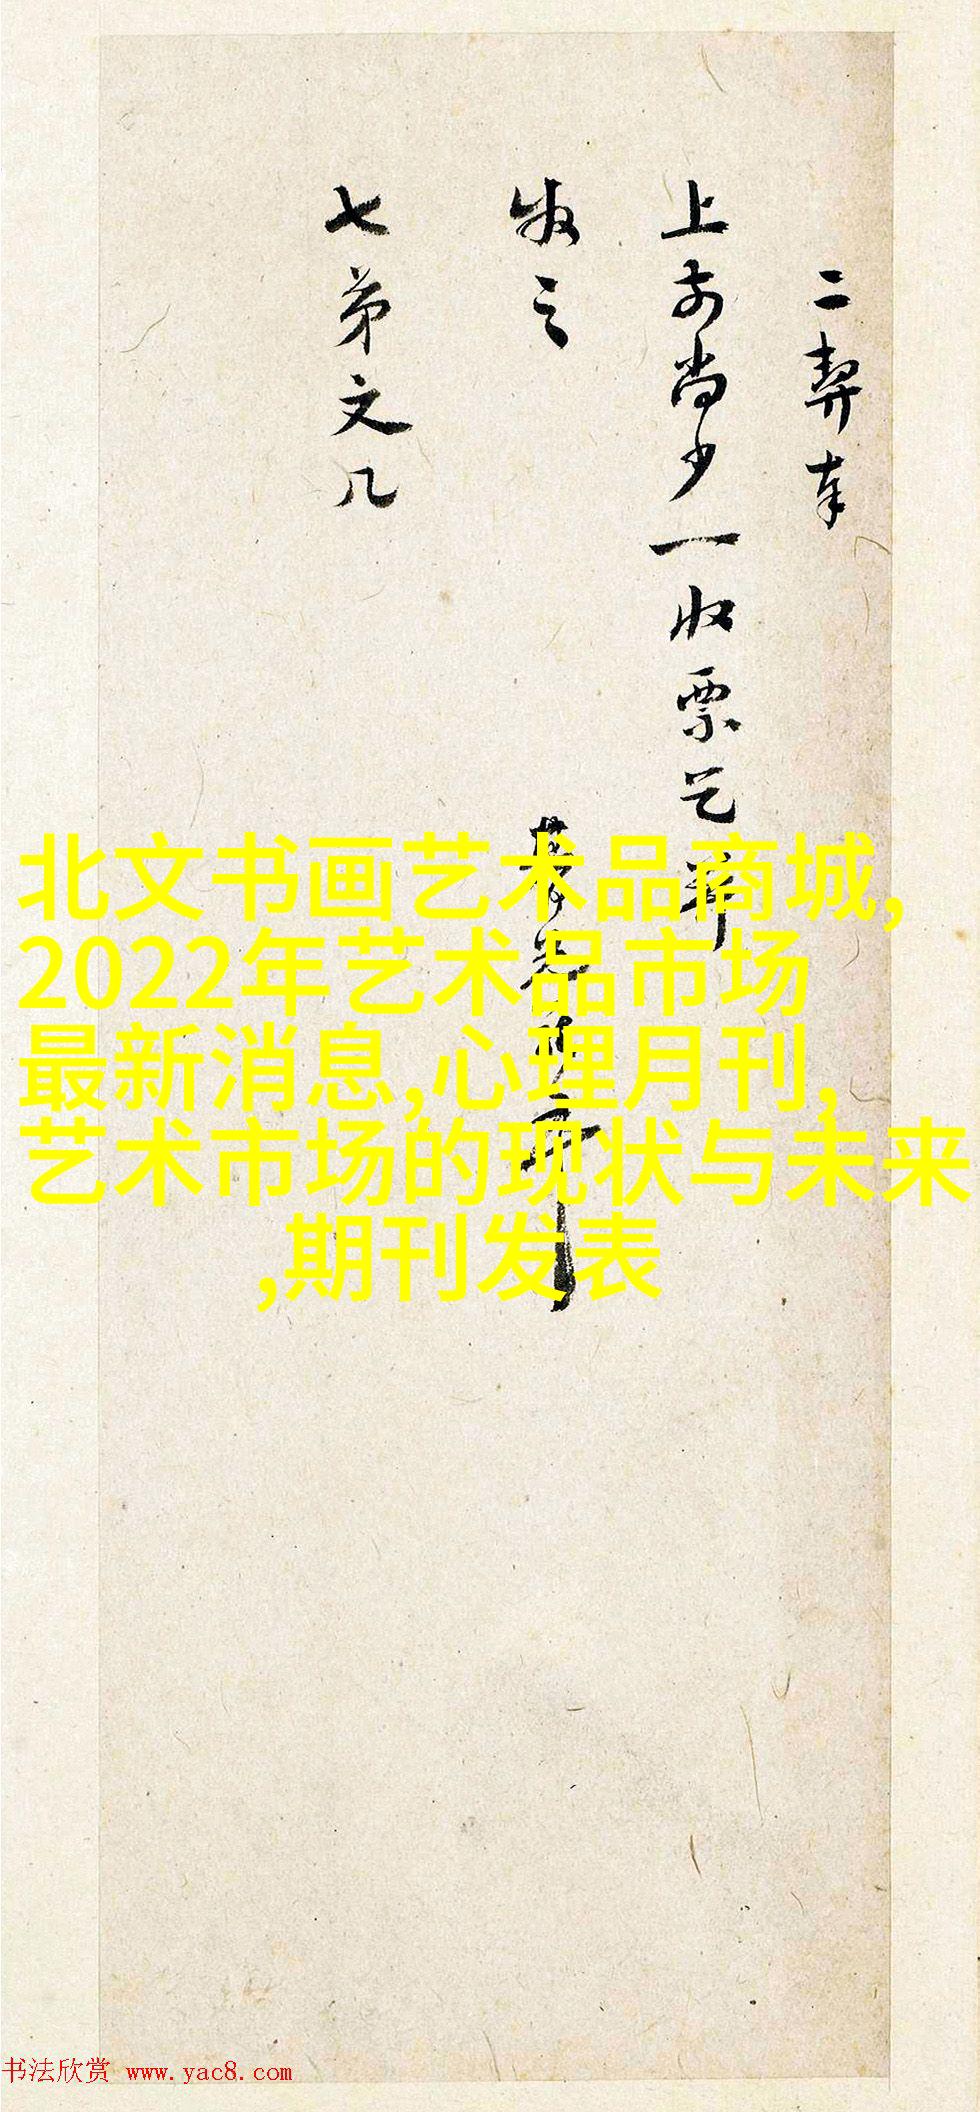 二契奉
上前尚少一收票乞并
发之
七弟文几
北文书画艺术品商城,
2022年艺术品市场
最新消息,心理月刊,
艺术市场的现状与未来
,期刊发表
书法欣赏 www.yac8.com